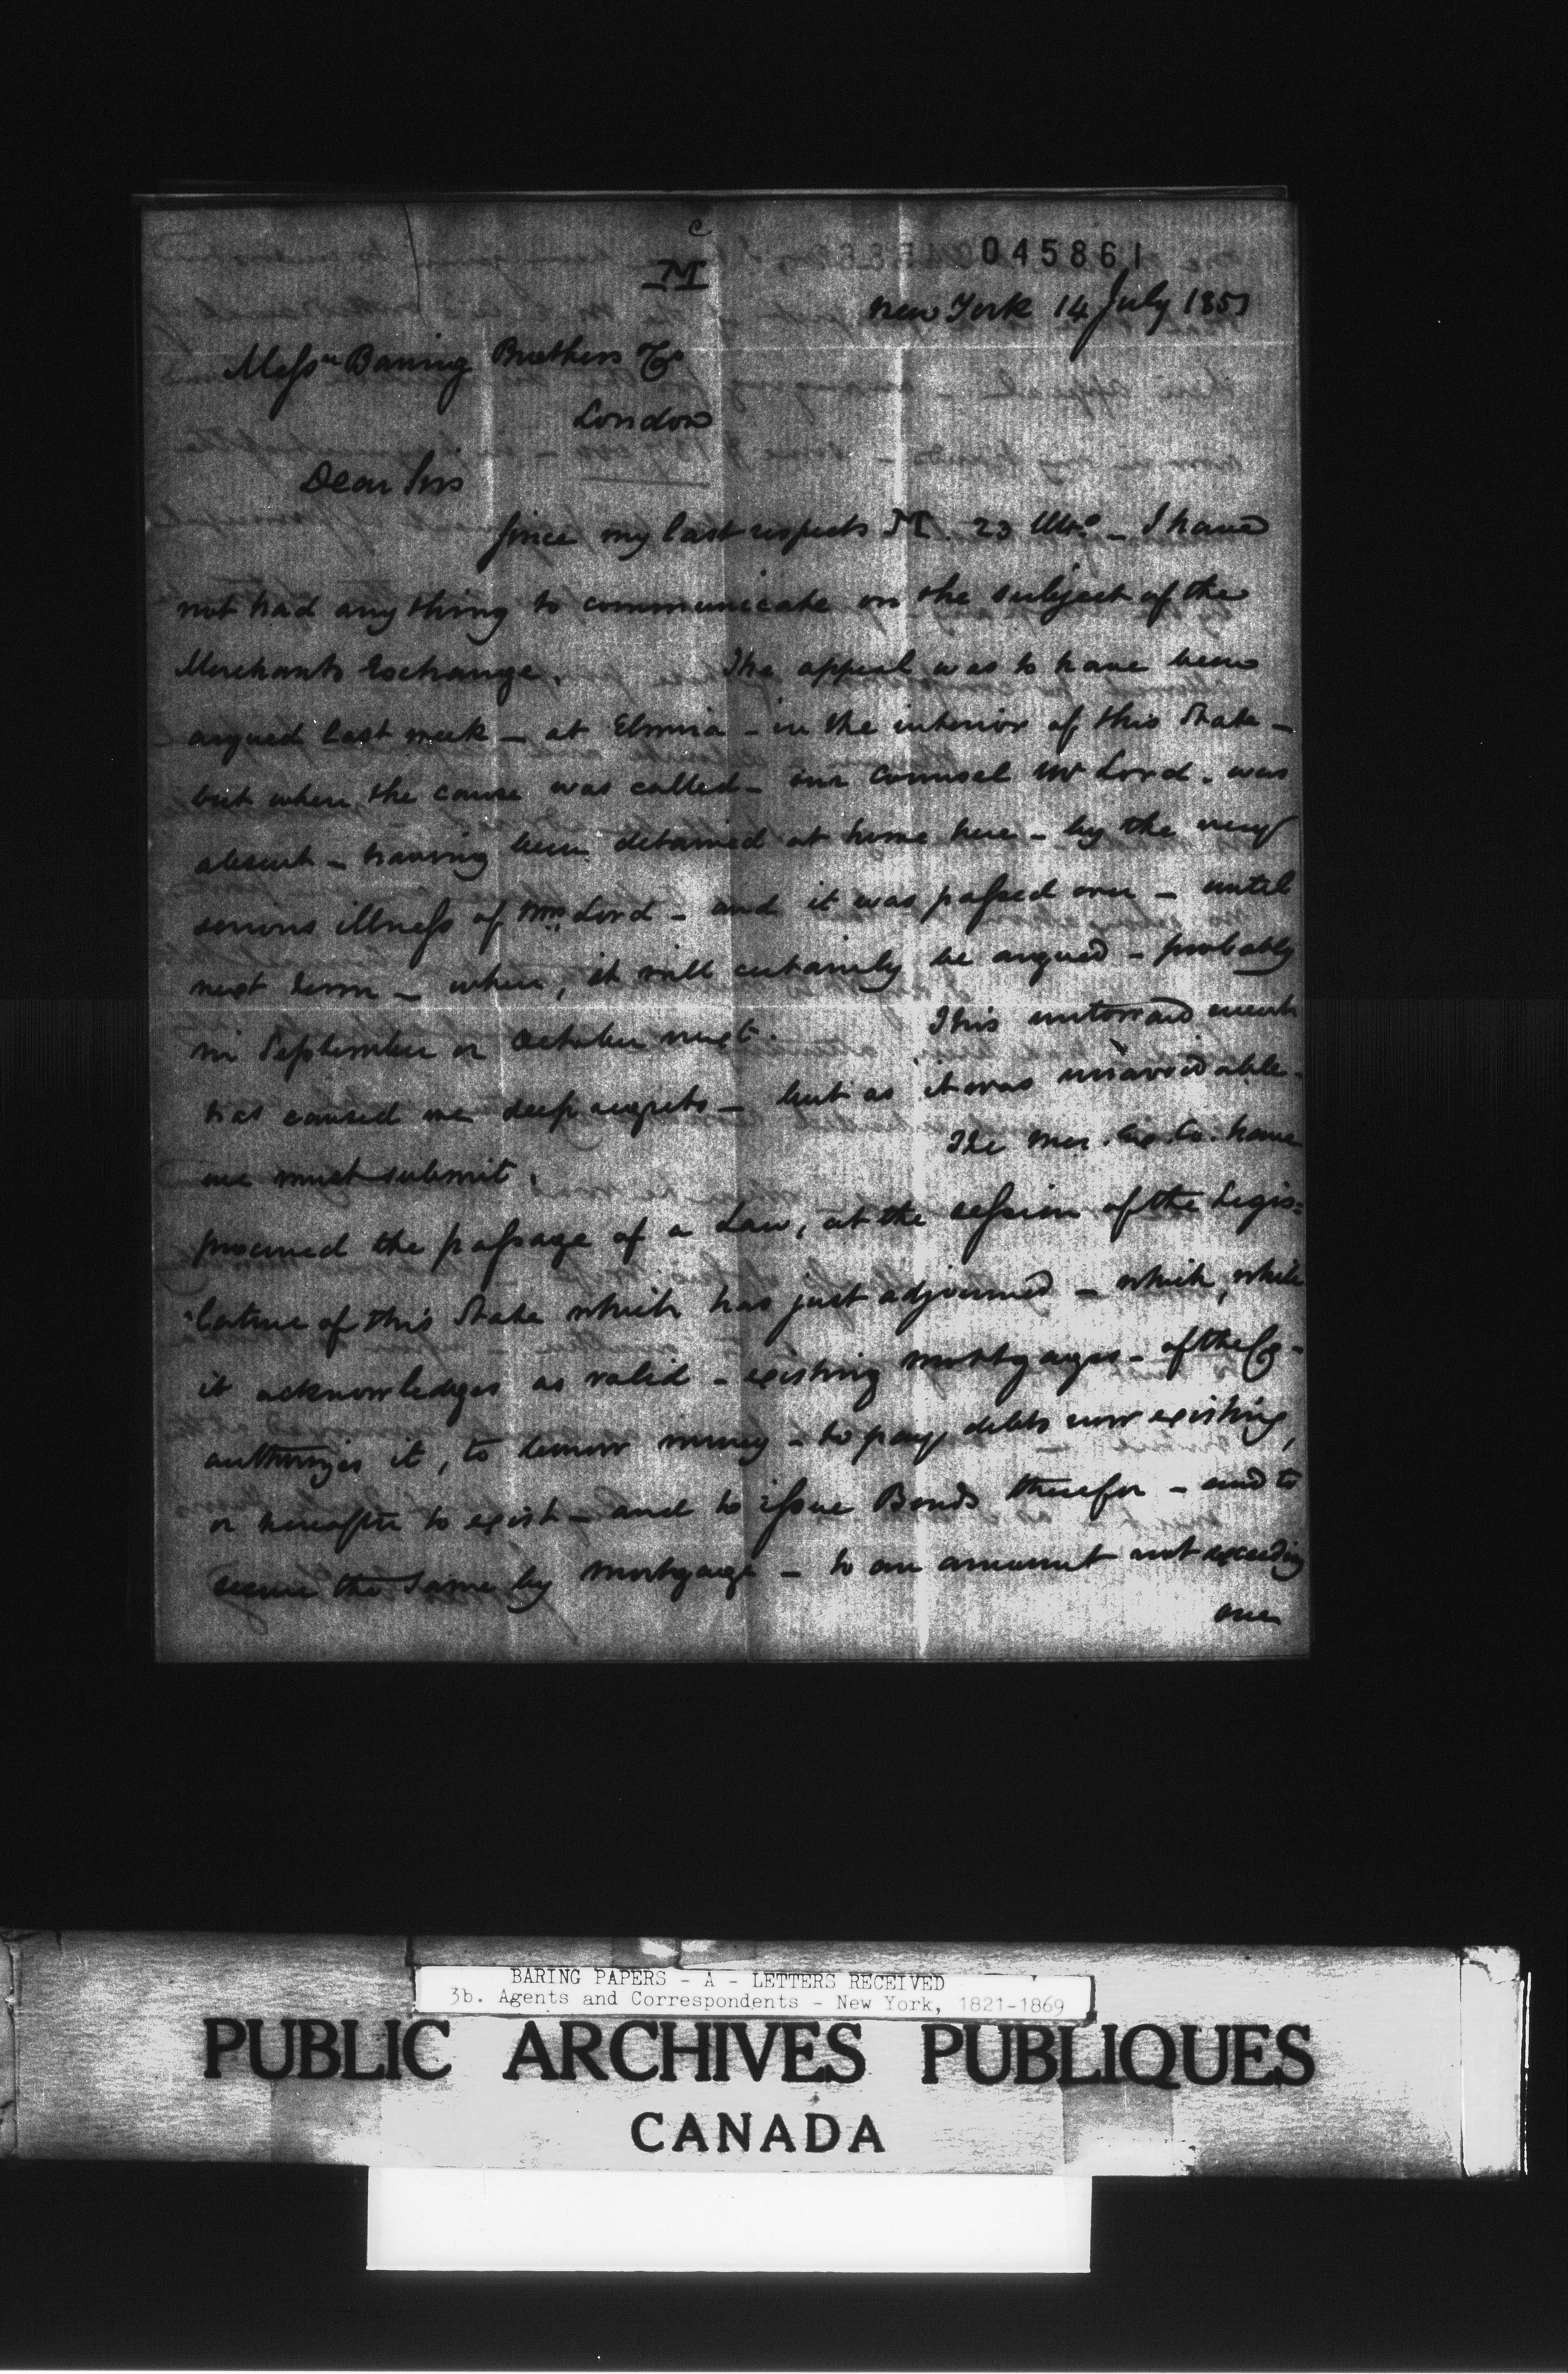 c
M
045861
New York 14 July 1851
Messrs Baring Brothers & Co
London
Dear Sirs
Since my last respects M. 23 Ulto. – I have
not had any thing to communicate on the subject of the
Merchants Exchange. The appeal was to have been
argued last week – at Elmira – in the interior of this State –
but when the cause was called – our Counsel Mr Lord. was
absent – having been detained at home here – by the very
serious illness of Mrs Lord – and it was passed over – until
next term – when, it will certainly be argued – probably
in September or October next. This untoward event
has caused me deep regrets – but as it was unavoidable –
we must submit. The Mer. Ex. Co. have
procured the passage of a Law, at the session of the Legis=
lature of this State which has just adjourned – which, while
it acknowledges as valid – existing mortgages – of the Co –
authorizes it, to borrow money – to pay debts now existing,
or hereafter to exist – and to issue Bonds therefor – and to
secure the same by mortgage – to an amount not exceeding
one
BARING PAPERS - A - LETTERS RECEIVED
3b. Agents and Correspondents - New York, 1821-1869
PUBLIC ARCHIVES PUBLIQUES
CANADA